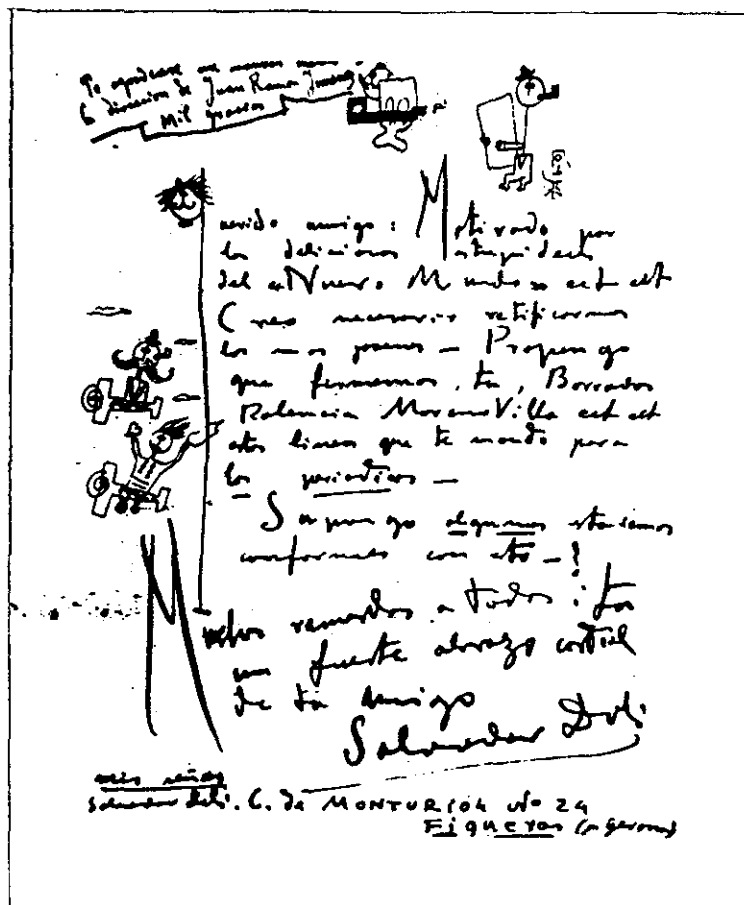 Te agradecere me mandes
la direccion de Juan Ramon Jimenez
Mil gracias
uerido amigo: Motivado por
las deliciosas estupideces
del «Nuevo Mundo» ect ect
Creo necesario retificarnos
los mas jovenes — Propongo
que firmemos, tu, Borrados
Palencia Moreno Villa ect ect
estas lineas que te mando para
los periodicos —
Supongo algunos estaremos
conformes con esto —!
Muchos recuerdos a todos i tu
un fuerte abrazo cordial
de tu amigo
Salvador Dali
mis señas
Salvador Dali. C. de MONTURIOL No 24
FiguERas (Gerona)